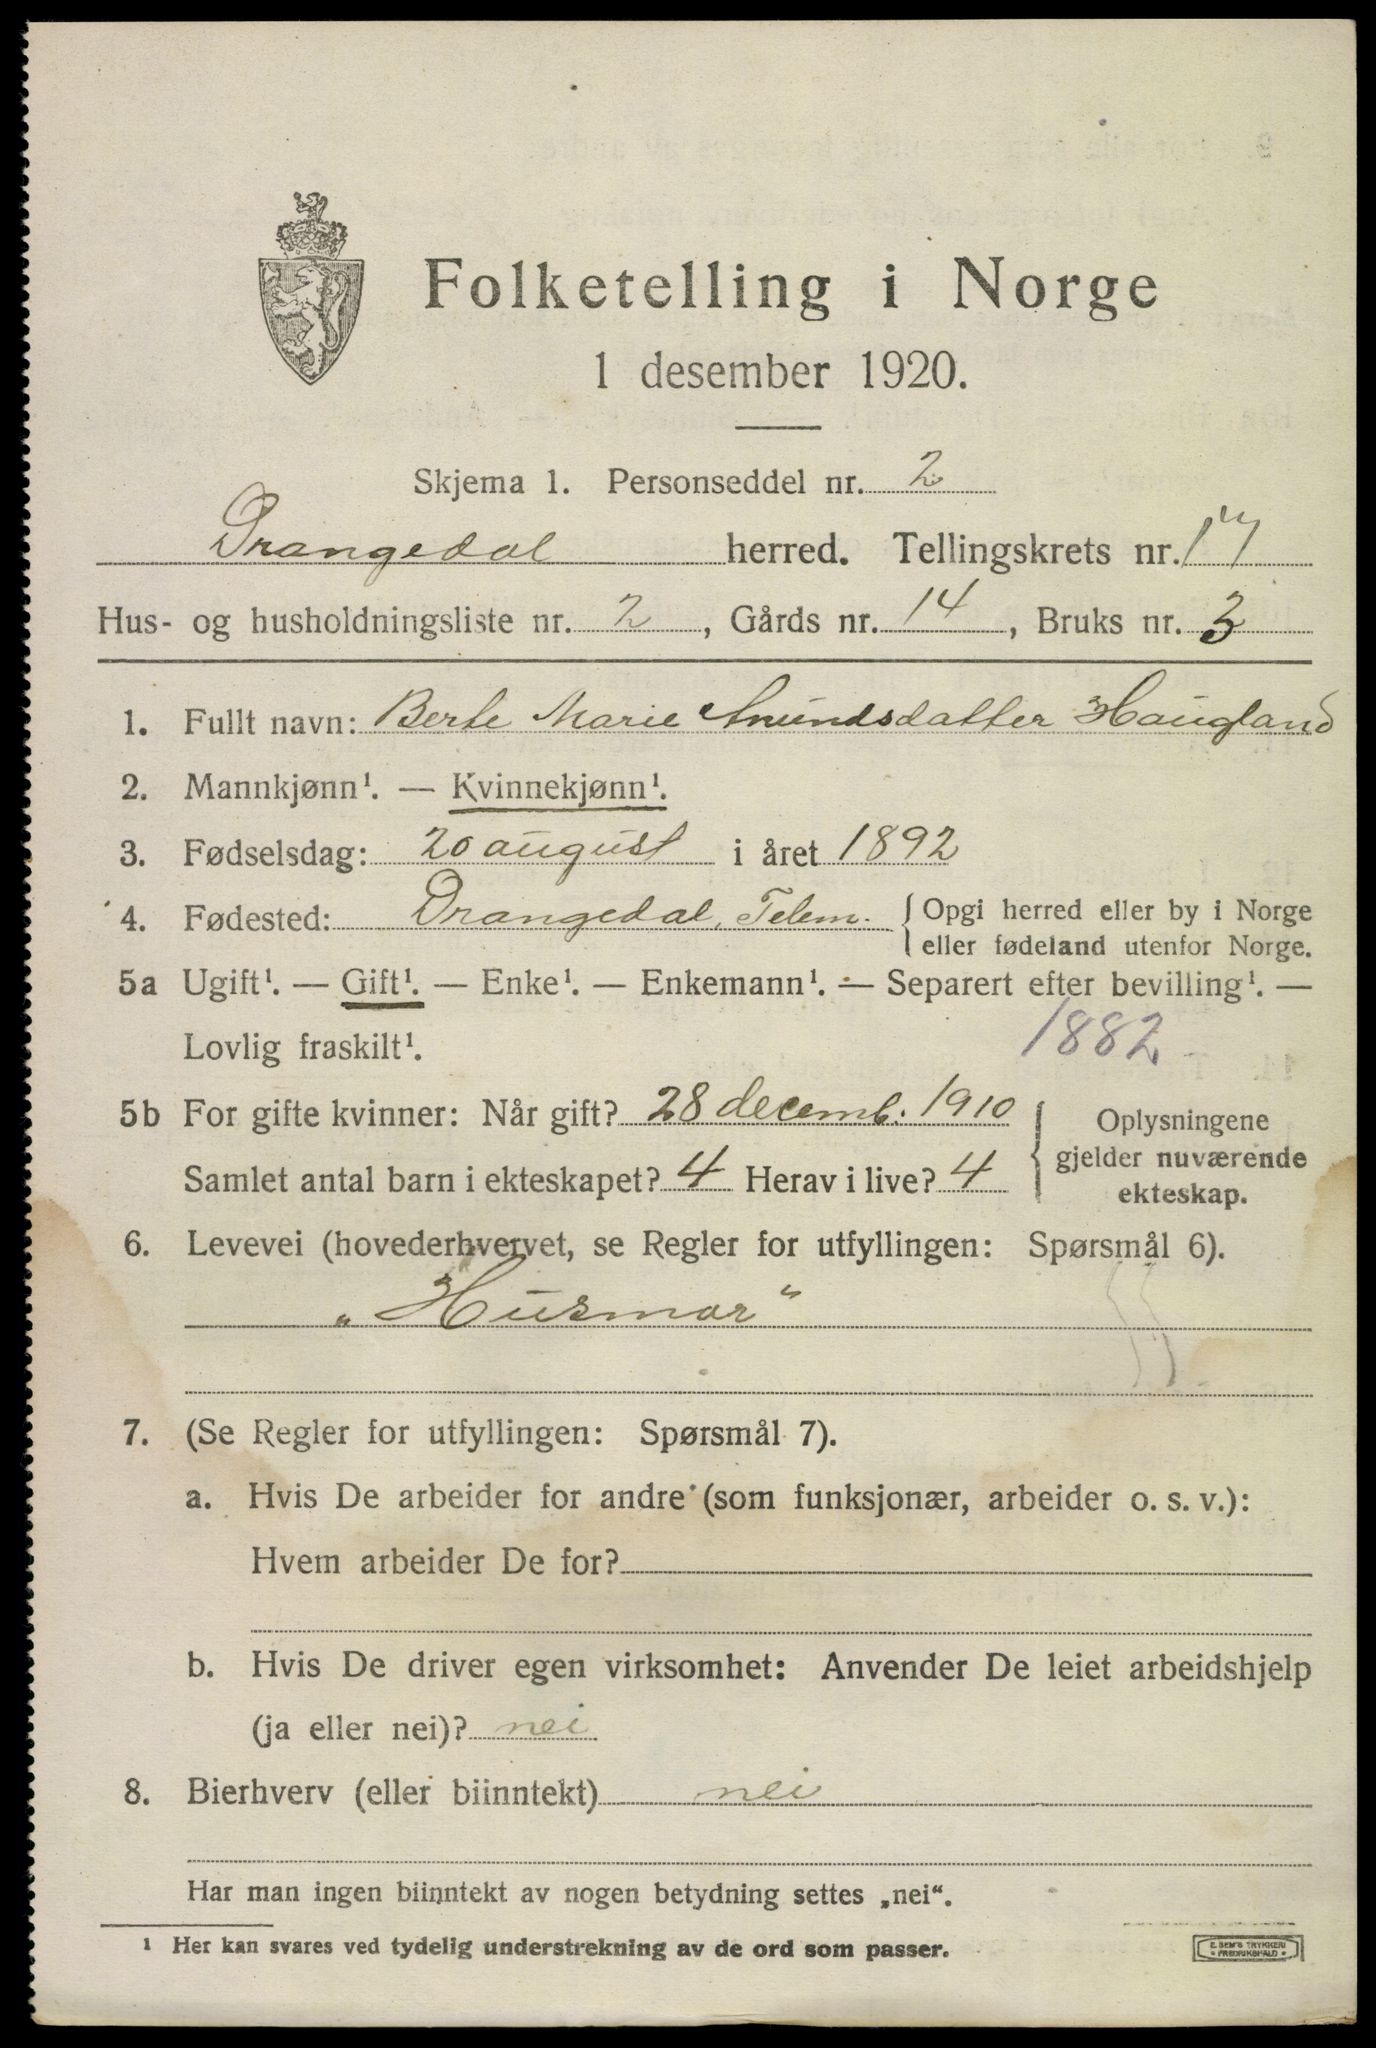 Folketelling i Norge
1 desember 1920.
Skjema 1. Personseddel nr. 2
Drangedal herred. Tellingskrets nr. 17
Hus- og husholdningsliste nr. 2, Gårds nr. 14, Bruks nr. 3
1. Fullt navn: Berte Marie Anundsdatter Haugland
2. Mannkjønn¹. — Kvinnekjønn¹.
3. Fødselsdag: 20 august i året 1892
4. Fødested: Drangedal, Telem. { Opgi herred eller by i Norge
eller fødeland utenfor Norge.
5a Ugift¹. — Gift¹. — Enke¹. — Enkemann¹. — Separert efter bevilling¹. —
Lovlig fraskilt¹. 1882
5b For gifte kvinner: Når gift? 28 decemb. 1910 { Oplysningene
gjelder nuværende
ekteskap.
Samlet antal barn i ekteskapet? 4 Herav i live? 4
6. Levevei (hovederhvervet, se Regler for utfyllingen: Spørsmål 6).
„Husmor"
7. (Se Regler for utfyllingen: Spørsmål 7).
a. Hvis De arbeider for andre (som funksjonær, arbeider o. s. v.):
Hvem arbeider De for?
b. Hvis De driver egen virksomhet: Anvender De leiet arbeidshjelp
(ja eller nei)? nei
8. Bierhverv (eller biinntekt) nei
Har man ingen biinntekt av nogen betydning settes „nei“.
¹ Her kan svares ved tydelig understrekning av de ord som passer.
E. SEM'S TRYKKERI
• FREDRIKSHALD •